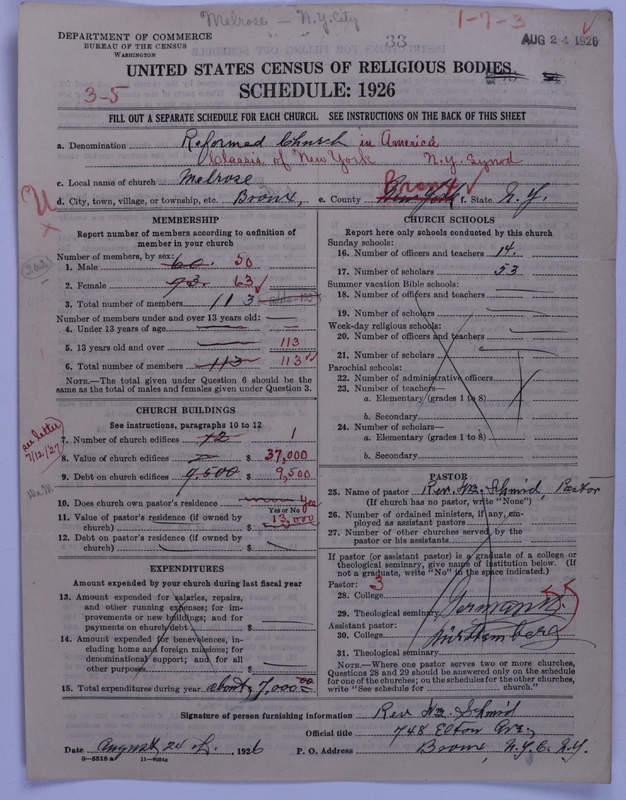 Melrose — N.Y. City
1-7-3
DEPARTMENT OF COMMERCE
BUREAU OF THE CENSUS
WASHINGTON
33
AUG 24 1926
UNITED STATES CENSUS OF RELIGIOUS BODIES
3-5
SCHEDULE: 1926
FILL OUT A SEPARATE SCHEDULE FOR EACH CHURCH. SEE INSTRUCTIONS ON THE BACK OF THIS SHEET
a. Denomination Reformed Church in America
Classis of New York N.Y. Synod
c. Local name of church Melrose
d. City, town, village, or township, etc. Bronx, e. County New York Bronx f. State N.Y.
MEMBERSHIP
Report number of members according to definition of
member in your church
Number of members, by sex:
1. Male 60. 50
2. Female 93. 63
3. Total number of members 113
Number of members under and over 13 years old:
4. Under 13 years of age
5. 13 years old and over 113
6. Total number of members 113 113
NOTE.—The total given under Question 6 should be the
same as the total of males and females given under Question 3.
CHURCH BUILDINGS
See instructions, paragraphs 10 to 12
see letter
7/12/27
7. Number of church edifices 1
8. Value of church edifices $ 37,000
9. Debt on church edifices 9,500 $ 9,500
10. Does church own pastor's residence Yes
Yes or No
11. Value of pastor's residence (if owned by
church) $ 13,000
12. Debt on pastor's residence (if owned by
church) $
EXPENDITURES
Amount expended by your church during last fiscal year
13. Amount expended for salaries, repairs,
and other running expenses; for im-
provements or new buildings; and for
payments on church debt $
14. Amount expended for benevolences, in-
cluding home and foreign missions; for
denominational support; and for all
other purposes $
15. Total expenditures during year about $ 7,000 00
CHURCH SCHOOLS
Report here only schools conducted by this church
Sunday schools:
16. Number of officers and teachers 14.
17. Number of scholars 53
Summer vacation Bible schools:
18. Number of officers and teachers
19. Number of scholars
Week-day religious schools:
20. Number of officers and teachers
21. Number of scholars
Parochial schools:
22. Number of administrative officers
23. Number of teachers—
a. Elementary (grades 1 to 8)
b. Secondary
24. Number of scholars—
a. Elementary (grades 1 to 8)
b. Secondary
PASTOR
25. Name of pastor Rev. Wm. Schmid, Pastor
(If church has no pastor, write "None")
26. Number of ordained ministers, if any, em-
ployed as assistant pastors
27. Number of other churches served by the
pastor or his assistants
If pastor (or assistant pastor) is a graduate of a college or
theological seminary, give name of institution below. (If
not a graduate, write "No" in the space indicated.)
Pastor: 3
28. College
29. Theological seminary Germany
Assistant pastor:
30. College Württemberg
31. Theological seminary
NOTE.—Where one pastor serves two or more churches,
Questions 28 and 29 should be answered only on the schedule
for one of the churches; on the schedules for the other churches,
write "See schedule for church."
Signature of person furnishing information Rev Wm. Schmid
Official title 748 Elton Ave.,
Date August 24th, 1926 P. O. Address Bronx, N.Y.C. N.Y.
8—5518 a